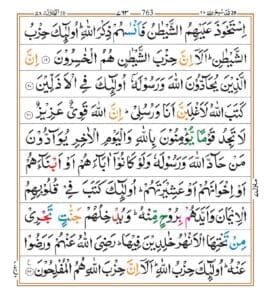 اِسْتَحْوَذَ عَلَيْهِمُ الشَّيْطٰنُ فَاَنْسٰىهُمْ ذِكْرَ اللّٰهِ ؕ اُولٰٓئِكَ حِزْبُ
الشَّيْطٰنِ ؕ اَلَاۤ اِنَّ حِزْبَ الشَّيْطٰنِ هُمُ الْخٰسِرُوْنَ ﴿۱۹﴾ اِنَّ
الَّذِيْنَ يُحَآدُّوْنَ اللّٰهَ وَرَسُوْلَهٗۤ اُولٰٓئِكَ فِى الْاَذَلِّيْنَ ﴿۲۰﴾
كَتَبَ اللّٰهُ لَاَغْلِبَنَّ اَنَا وَرُسُلِىْ ؕ اِنَّ اللّٰهَ قَوِىٌّ عَزِيْزٌ ﴿۲۱﴾
لَا تَجِدُ قَوْمًا يُّؤْمِنُوْنَ بِاللّٰهِ وَالْيَوْمِ الْاٰخِرِ يُوَآدُّوْنَ
مَنْ حَآدَّ اللّٰهَ وَرَسُوْلَهٗ وَلَوْ كَانُوْۤا اٰبَآءَهُمْ اَوْ اَبْنَآءَهُمْ
اَوْ اِخْوَانَهُمْ اَوْ عَشِيْرَتَهُمْ ؕ اُولٰٓئِكَ كَتَبَ فِىْ قُلُوْبِهِمُ
الْاِيْمَانَ وَاَيَّدَهُمْ بِرُوْحٍ مِّنْهُ ؕ وَيُدْخِلُهُمْ جَنّٰتٍ تَجْرِىْ
مِنْ تَحْتِهَا الْاَنْهٰرُ خٰلِدِيْنَ فِيْهَا ؕ رَضِىَ اللّٰهُ عَنْهُمْ وَرَضُوْا
عَنْهُ ؕ اُولٰٓئِكَ حِزْبُ اللّٰهِ ؕ اَلَاۤ اِنَّ حِزْبَ اللّٰهِ هُمُ الْمُفْلِحُوْنَ ﴿۲۲﴾
763